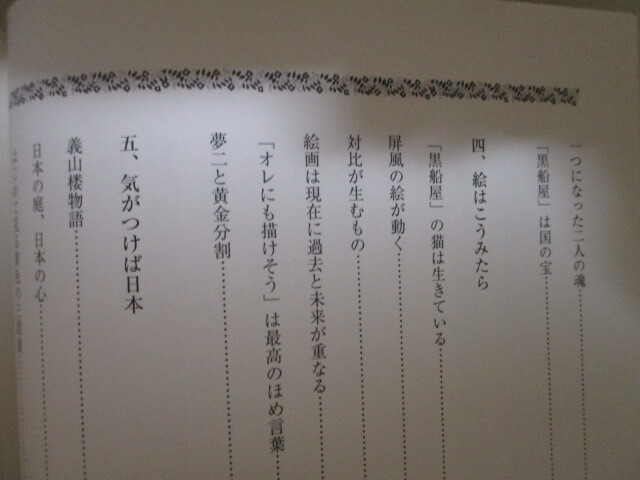 一つになった二人の魂
「黒船屋」は国の宝
四、絵はこうみたら
「黒船屋」の猫は生きている
屏風の絵が動く
対比が生むもの
絵画は現在に過去と未来が重なる
「オレにも描けそう」は最高のほめ言葉
夢二と黄金分割
五、気がつけば日本
義山楼物語
日本の庭、日本の心